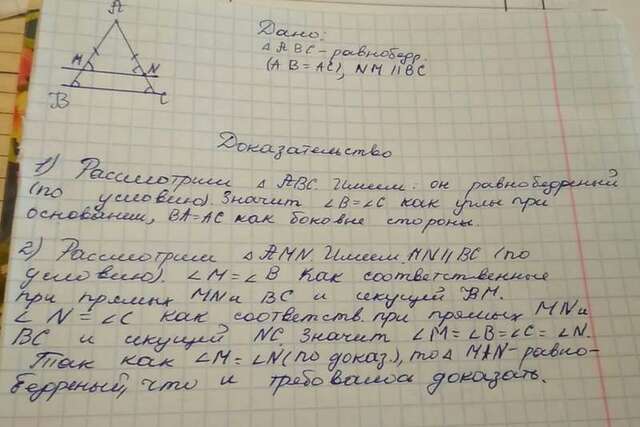 A
M
N
B
C
Дано:
△ABC - равнобедр.
(AB=AC), NM || BC
Доказательство
1) Рассмотрим △ABC. Имеем: он равнобедренный
(по условию). Значит ∠B=∠C как углы при
основании, BA=AC как боковые стороны.
2) Рассмотрим △AMN. Имеем, MN || BC (по
условию). ∠M=∠B как соответственные
при прямых MN и BC и секущей BM.
∠N=∠C как соответств. при прямых MN и
BC и секущей NC. Значит ∠M=∠B=∠C=∠N.
Так как ∠M=∠N (по доказ.), то △MAN - равно-
бедренный, что и требовалоа доказать.